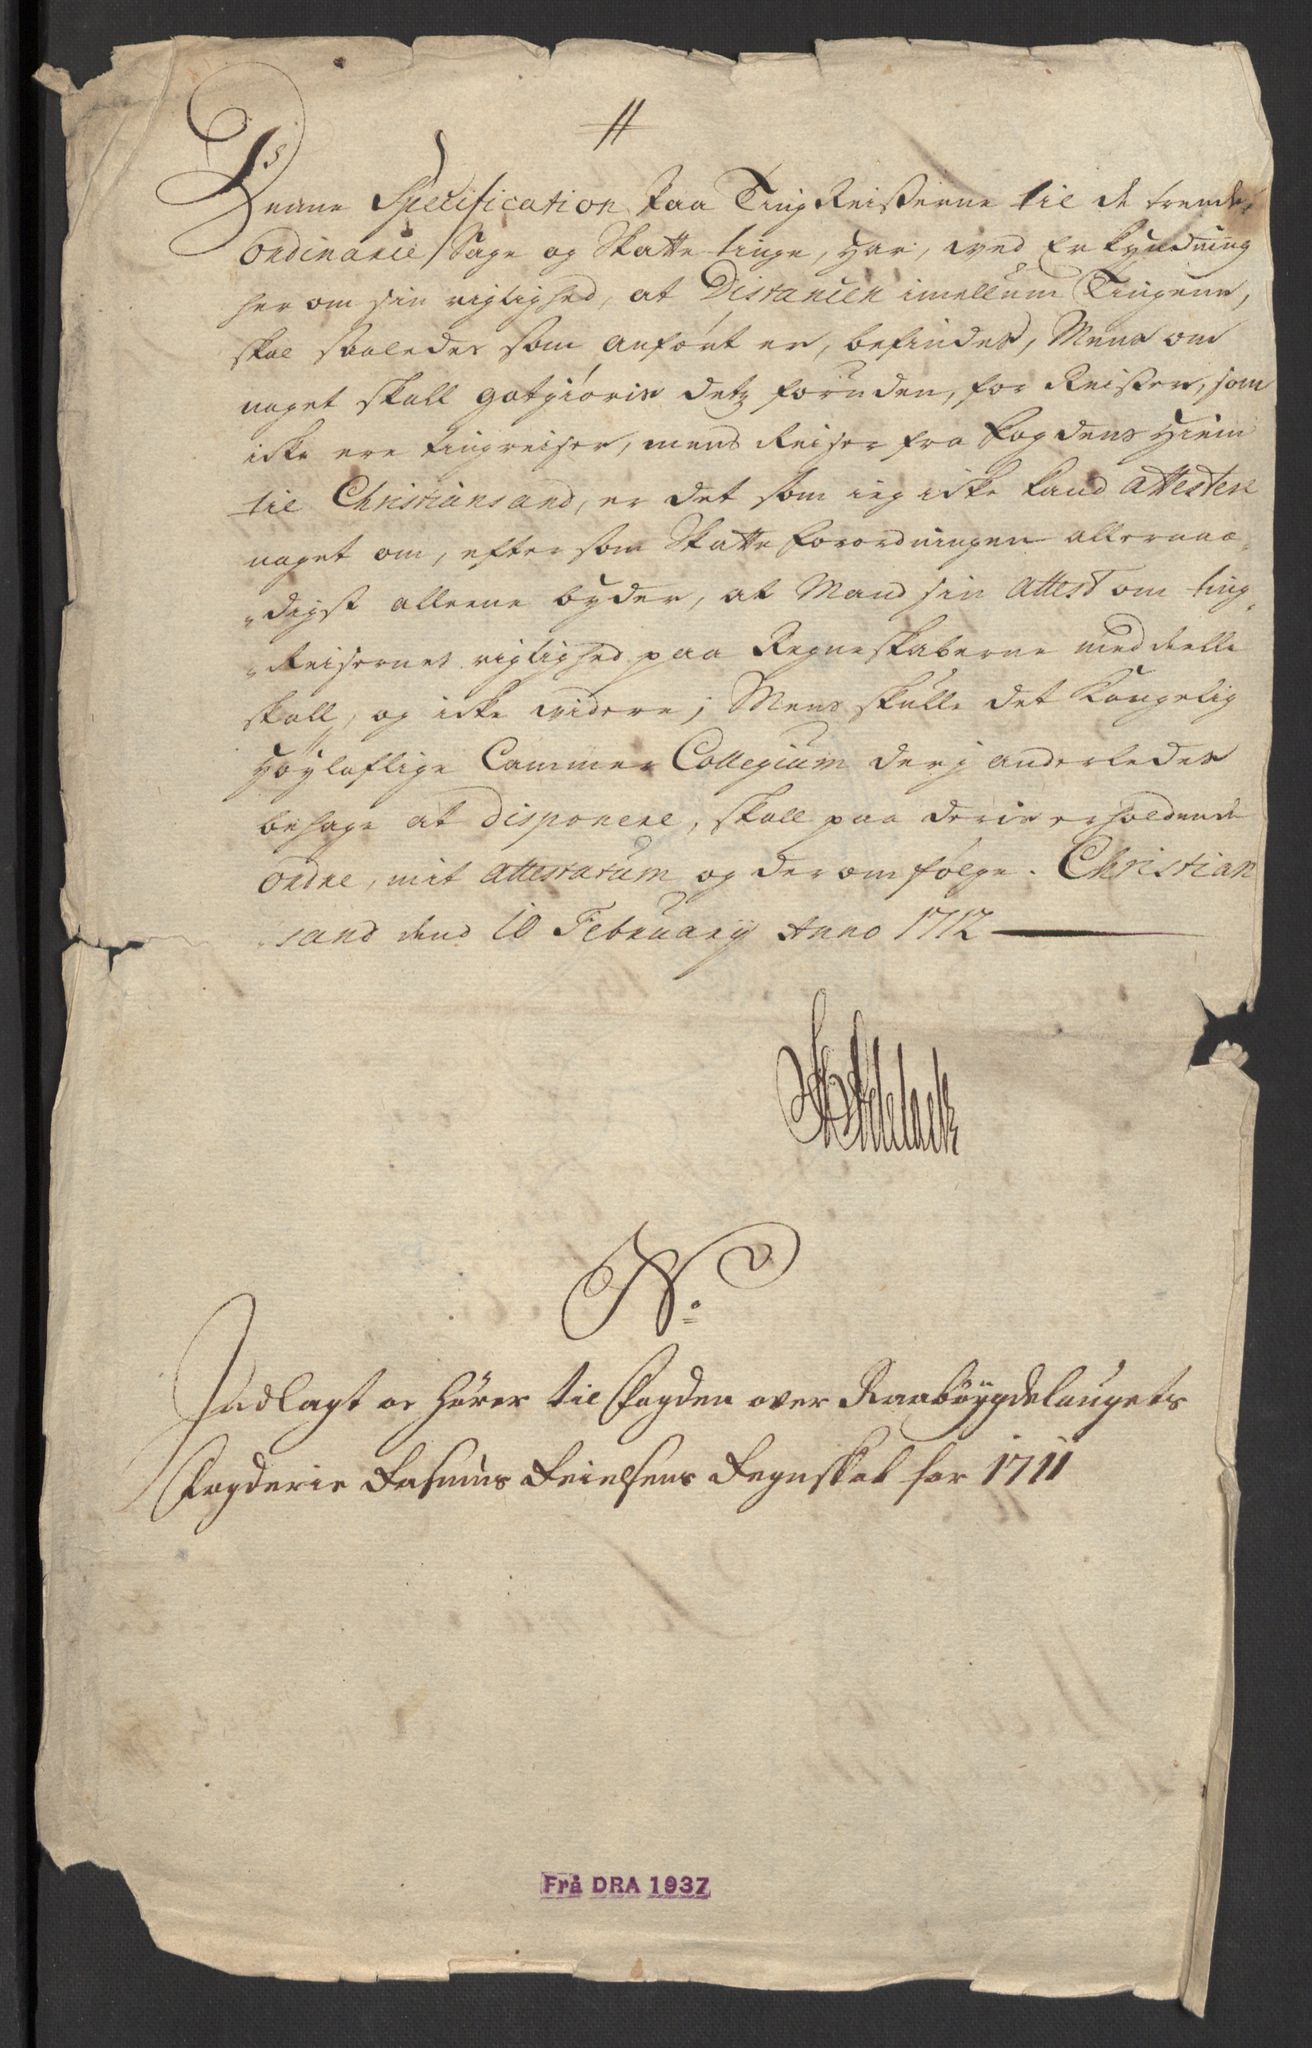 Denne Specification paa TingReisserne til de trende
Ordinarie Sage og Skatte tinge, har, ved Erkyndning
her om sin rigtighed, at Distancen imellum Tingene,
skal saaledes som anført er, befindes, Mens om
noget skall gotgiøris detz foruden, for Reisser, som
icke ere tingreiser, mens Reiser fra fogdens Hiem
til Christiansand, er det som ieg icke kand attestere
noget om, eftersom Skatte forordningen allernaa-
digst alleene byder, at Mand sin Attest om ting-
Reisernes rigtighed paa Regneskaberne meddeelle
skall, og icke videre; Mens skulle det Kongelig
Høylaflige Cammer Collegium derj anderledes
behage at disponere, skall paa deris erholdende
Ordre, mit attestatum og derom følge. Christian
sand dend 10 February Anno 1712
No
Indlagt oc hører til Fogden over Raabøygdelaugets
Fogderie Rasmus Reielsens Regnskab for 1711
Frå DRA 1937